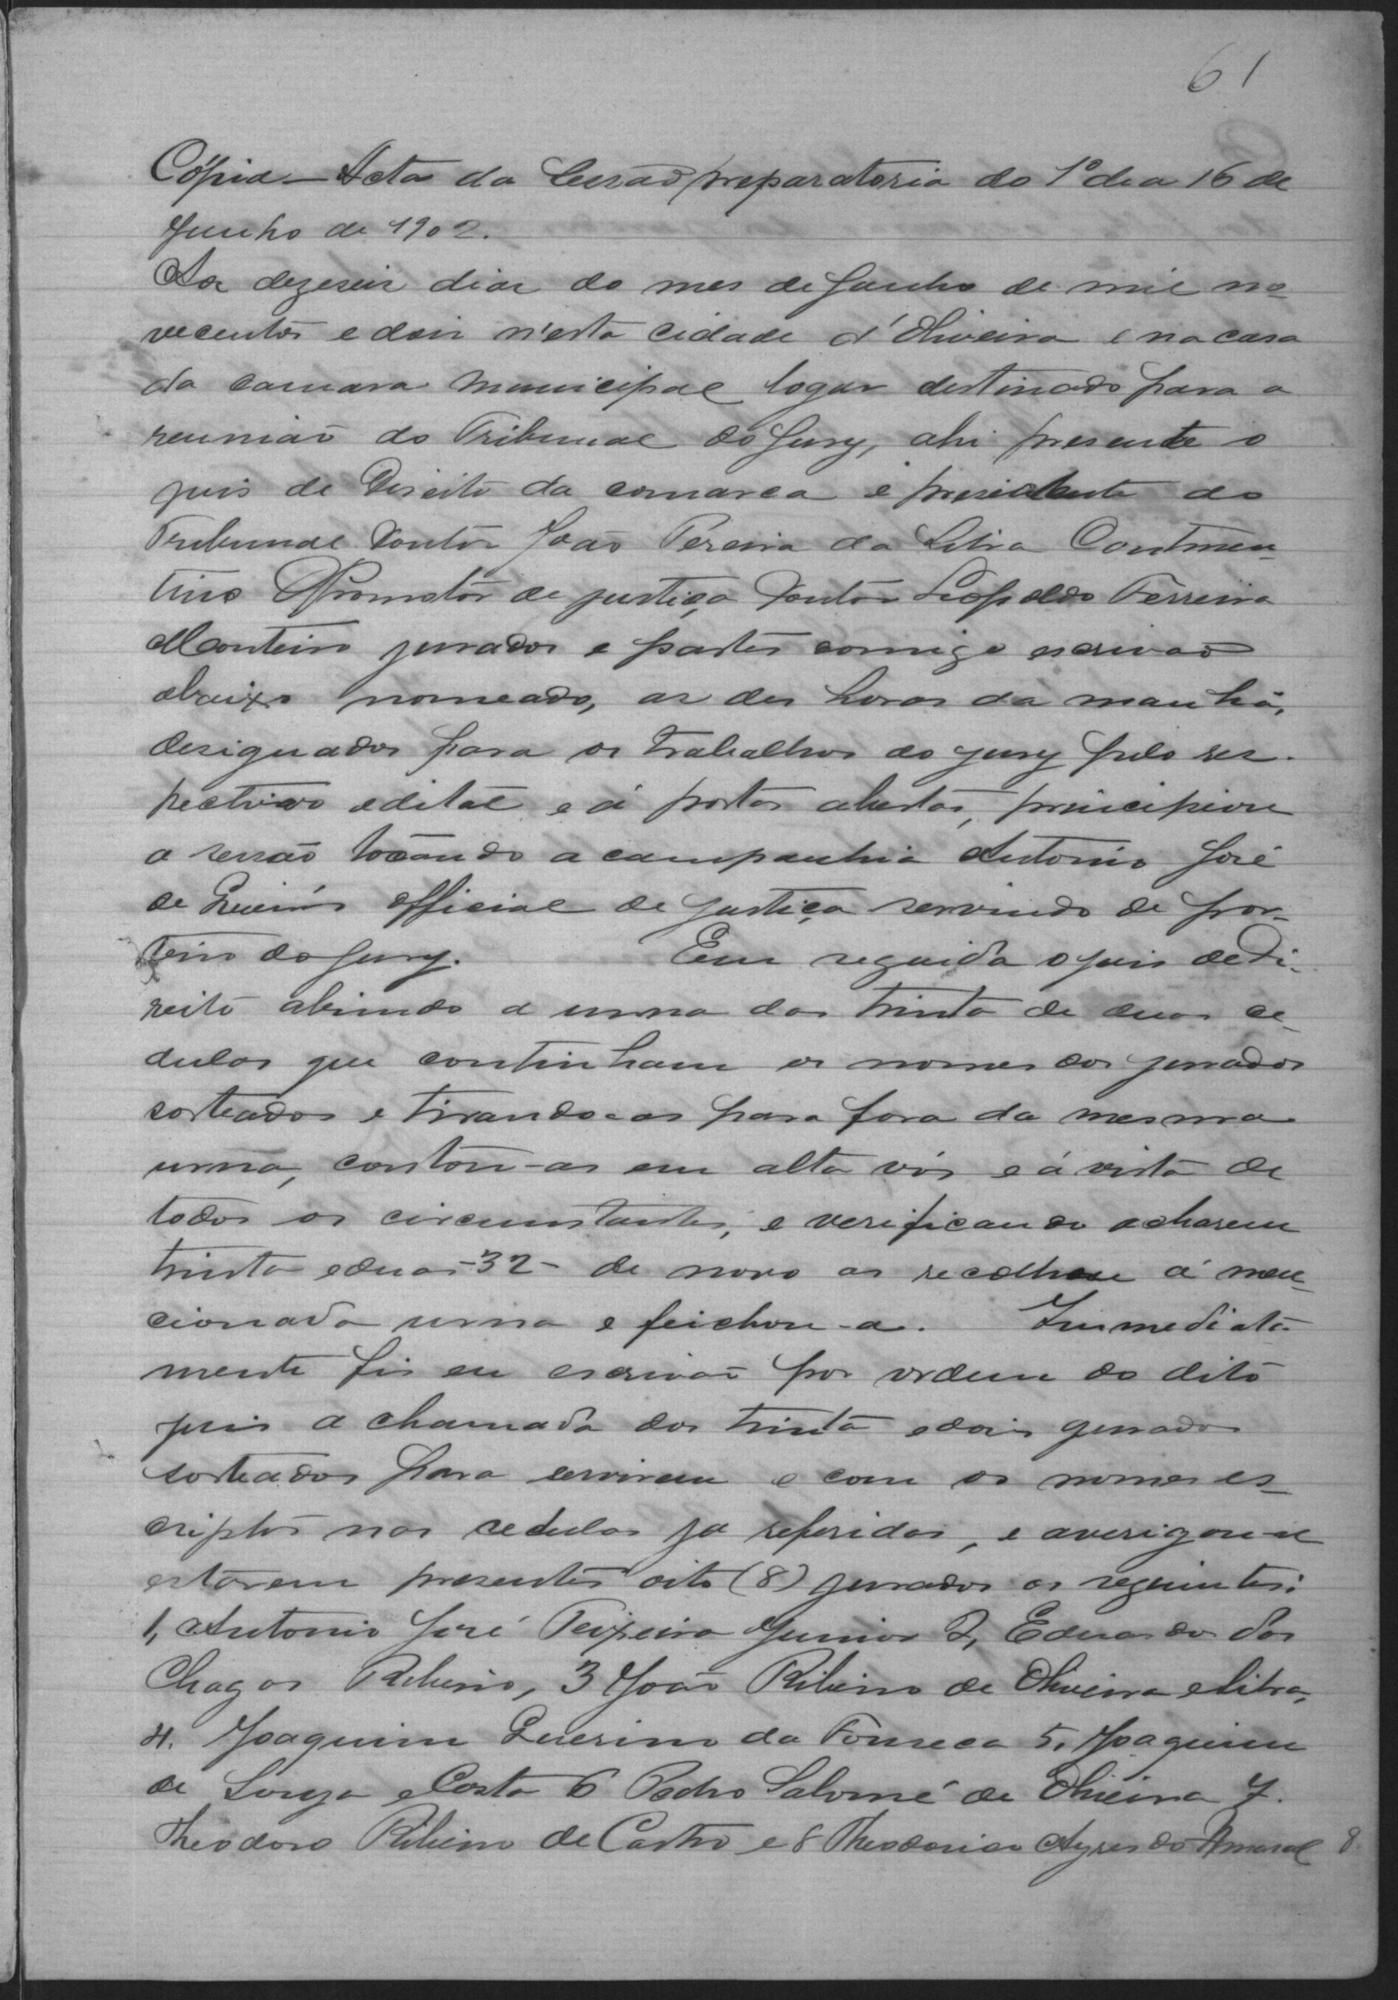 61
Cópia — Acta da Sessão preparatoria do 1º dia 16 de
Junho de 1902.
Aos dezeseis dias do mes de Junho de mil no-
vecentos e dois n'esta cidade d'Oliveira e na casa
da camara Municipal logar destinado para a
reunião do Tribunal do Jury, ahi presente o
juis de Direito da comarca e presidente do
Tribunal Doutôr João Pereira da Silva Contmen-
tino O Promotôr de justiça Doutôr Leopoldo Ferreira
Monteiro jurados e partes comigo escrivão
abaixo nomeado, as des horas da manhã,
designados para os trabalhos do jury pelo res-
pectivo edital e á portas abertas, principiou
a sessão tocando a campanhia Antonio José
de official de justiça servindo de por-
teiro do jury. Em seguida o juis de Di-
reito abrindo a urna das trinta de duas ce-
dulas que continham os nomes dos jurados
sorteados e tirando-as para fora da mesma
urna, contou-as em alta vós e á vista de
todos os circumstantes, e verificando acharem
trinta e duas -32- de novo as recolheu á men-
cionada urna e feichou-a. Immediata-
mente fis eu escrivão por ordem do dito
juis a chamada dos trinta e dois jurados
sorteados para servirem e com os nomes es-
criptos nas cedulas ja referidas, e averigou-se
estarem presentes oito (8) jurados os seguintes:
1, Antonio José Teixeira Junior 2, Eduardo das
Chagas Ribeiro, 3 João Ribeiro de Oliveira e Silva,
4. Joaquim Querino da Fonseca 5, Joaquim
de Souza e Costa 6 Pedro Salomé de Oliveira 7.
Theodoro Ribeiro de Castro e 8 Theodorico Ayres do Amaral 8